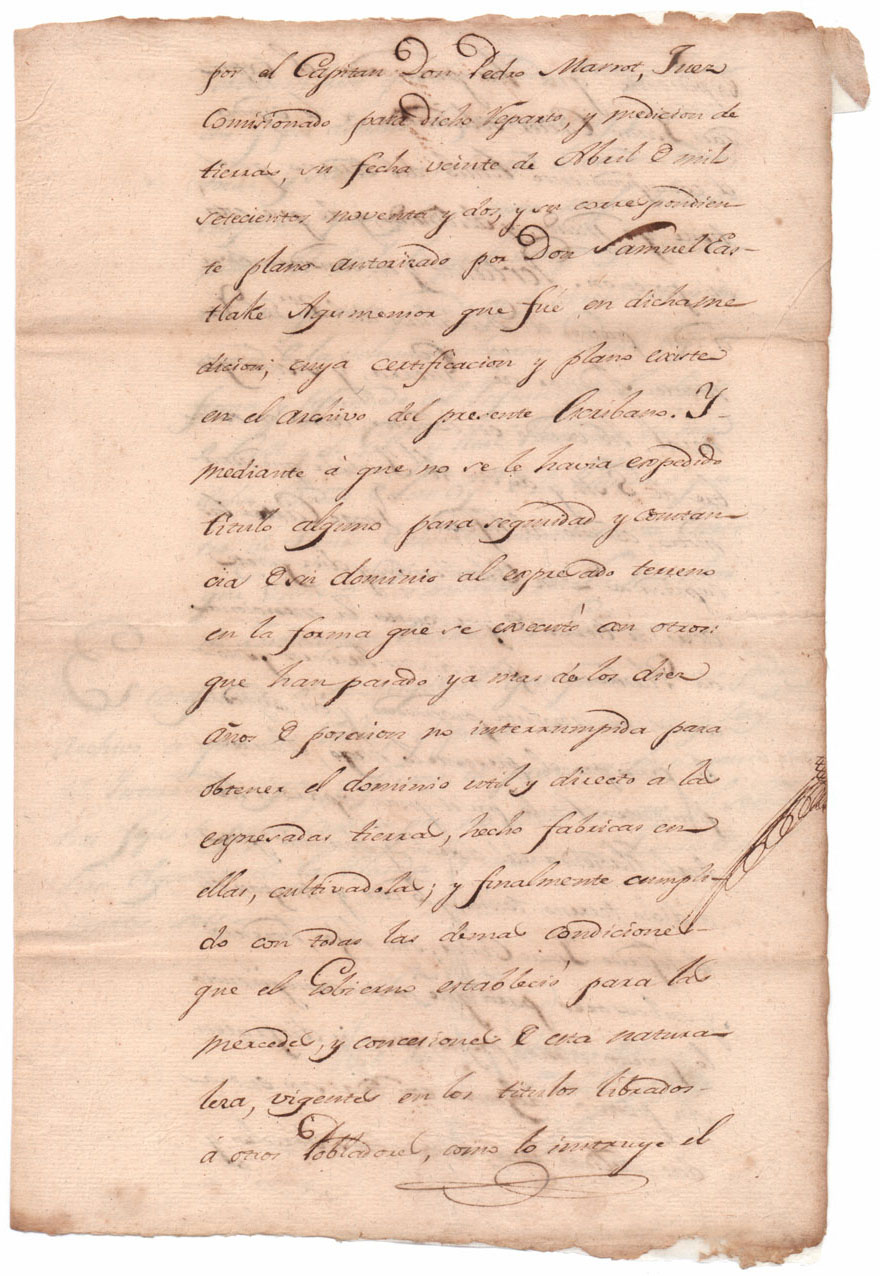 por el Capitan Don Pedro Marrot, Juez
Comisionado para dicho Reparto, y medicion de
tierras, su fecha veinte de Abril de mil
setecientos noventa y dos, y su correspondien
te plano autorizado por Don Samuel Eas-
tlake Agrimensor que fué en dicha me
dicion; cuya certificacion y plano existe
en el archivo del presente Escribano. Y
mediante á que no se le havia expedido
titulo alguno para seguridad y constan
cia de su dominio al expresado terreno
en la forma que se executó con otros
que han pasado ya mas de los diez
años de posecion no interrumpida para
obtener el dominio util y directo á las
expresadas tierras, hecho fabricas en
ellas, cultivadolas; y finalmente cumpli-
do con todas las demas condiciones
que el Gobierno estableció para las
mercedes, y concesiones de esta natura
leza, vigentes en los titulos librados
á otros Pobladores, como lo instruye el